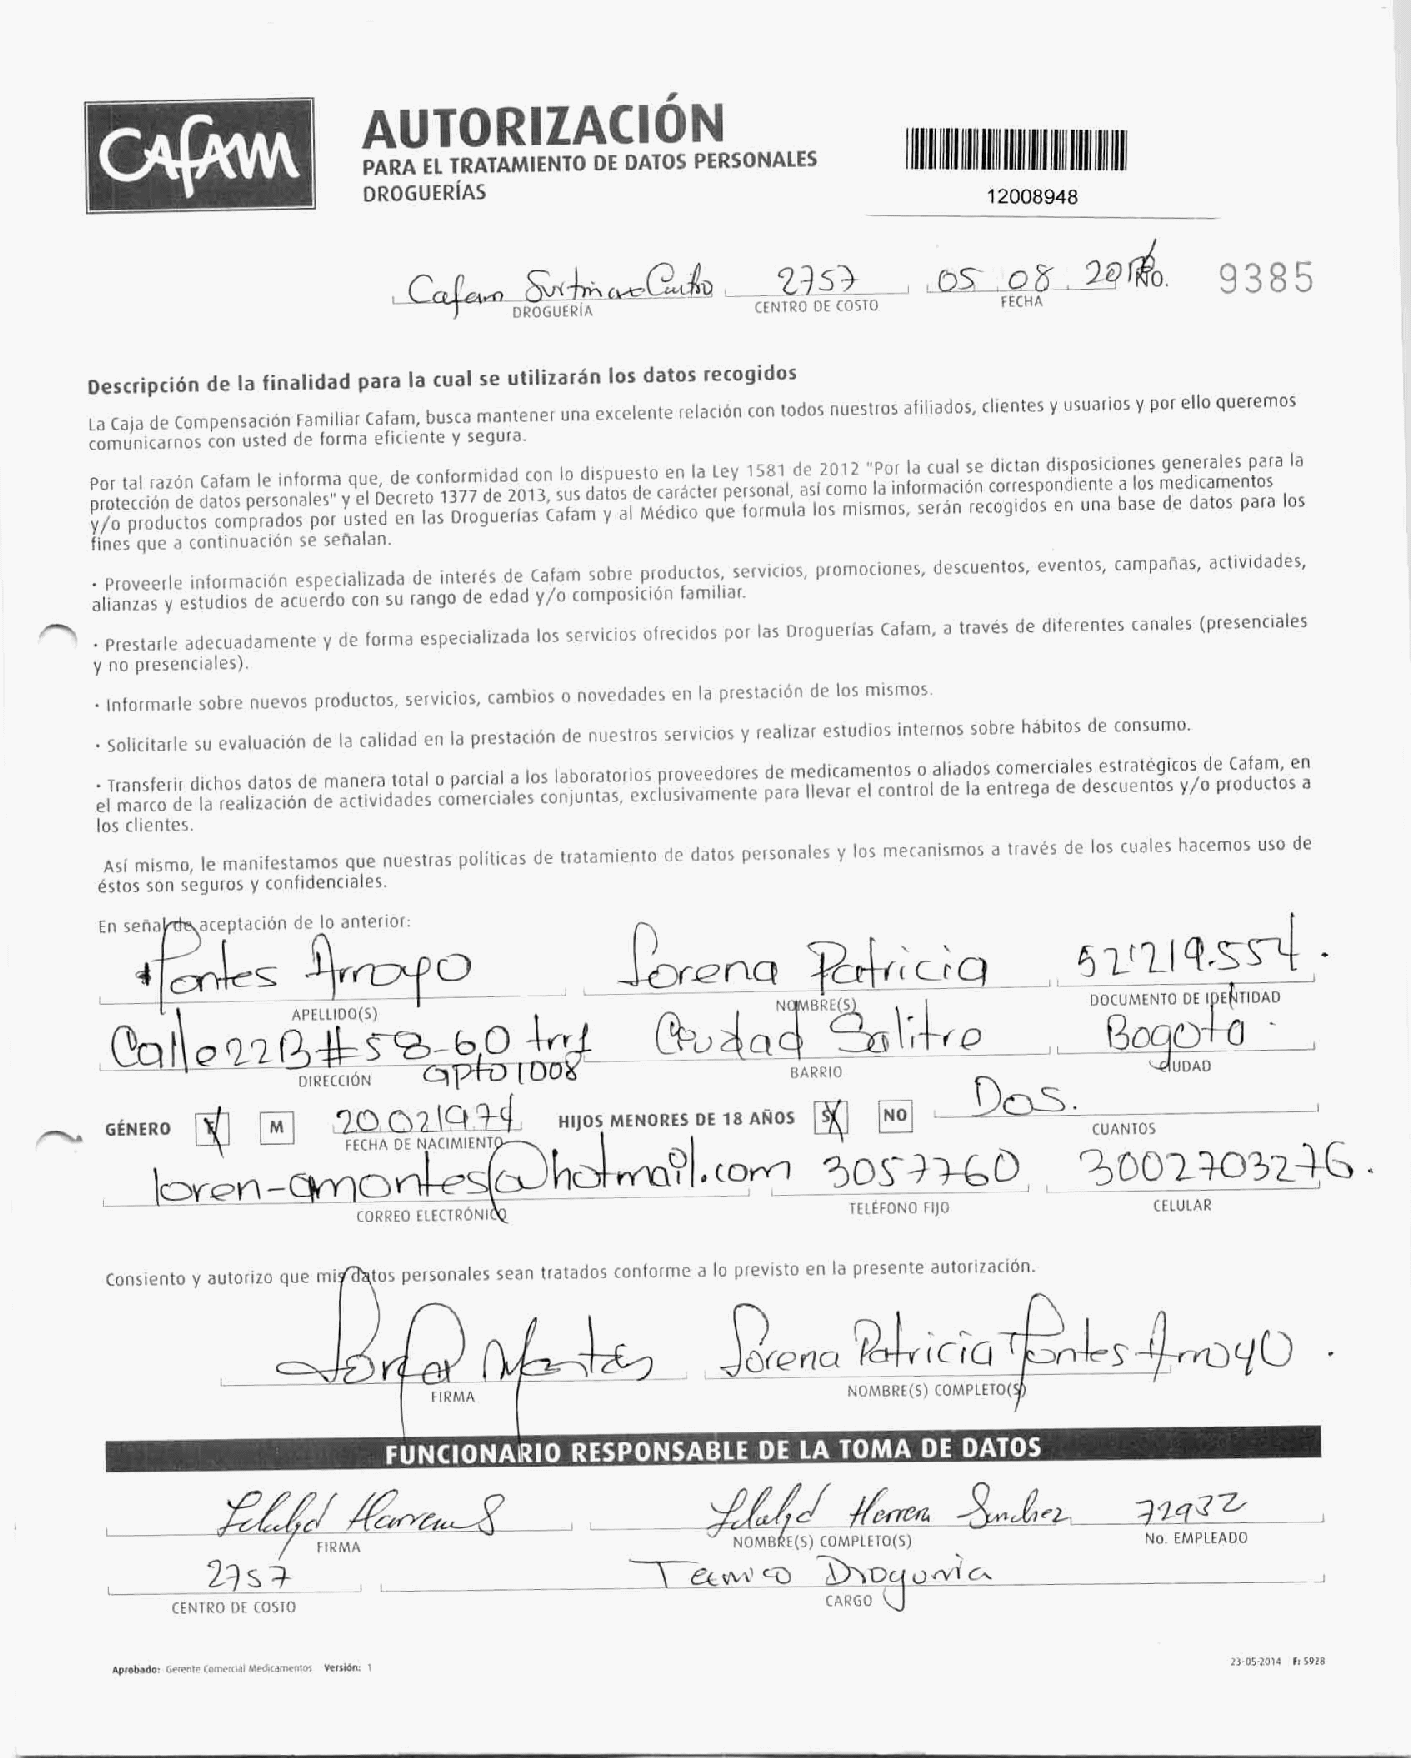 CAFAM
AUTORIZACIÓN
PARA EL TRATAMIENTO DE DATOS PERSONALES
DROGUERÍAS
12008948
Cafam 2757 05 08 20 No. 9385
DROGUERÍA CENTRO DE COSTO FECHA
Descripción de la finalidad para la cual se utilizarán los datos recogidos
La Caja de Compensación Familiar Cafam, busca mantener una excelente relación con todos nuestros afiliados, clientes y usuarios y por ello queremos
comunicarnos con usted de forma eficiente y segura.
Por tal razón Cafam le informa que, de conformidad con lo dispuesto en la Ley 1581 de 2012 "Por la cual se dictan disposiciones generales para la
protección de datos personales" y el Decreto 1377 de 2013, sus datos de carácter personal, así como la información correspondiente a los medicamentos
y/o productos comprados por usted en las Droguerías Cafam y al Médico que formula los mismos, serán recogidos en una base de datos para los
fines que a continuación se señalan.
· Proveerle información especializada de interés de Cafam sobre productos, servicios, promociones, descuentos, eventos, campañas, actividades,
alianzas y estudios de acuerdo con su rango de edad y/o composición familiar.
· Prestarle adecuadamente y de forma especializada los servicios ofrecidos por las Droguerías Cafam, a través de diferentes canales (presenciales
y no presenciales).
· Informarle sobre nuevos productos, servicios, cambios o novedades en la prestación de los mismos.
· Solicitarle su evaluación de la calidad en la prestación de nuestros servicios y realizar estudios internos sobre hábitos de consumo.
· Transferir dichos datos de manera total o parcial a los laboratorios proveedores de medicamentos o aliados comerciales estratégicos de Cafam, en
el marco de la realización de actividades comerciales conjuntas, exclusivamente para llevar el control de la entrega de descuentos y/o productos a
los clientes.
Así mismo, le manifestamos que nuestras políticas de tratamiento de datos personales y los mecanismos a través de los cuales hacemos uso de
éstos son seguros y confidenciales.
En señal de aceptación de lo anterior:
Montes Arroyo Lorena Patricia 52'219.554.
APELLIDO(S) NOMBRE(S) DOCUMENTO DE IDENTIDAD
Calle 22B # 58-60 trr1 Ciudad Salitre Bogota.
apto 1008
DIRECCIÓN BARRIO CIUDAD
GÉNERO F M 20021974 HIJOS MENORES DE 18 AÑOS SI NO Dos.
FECHA DE NACIMIENTO CUANTOS
loren-amontes@hotmail.com 3057760 3002703276.
CORREO ELECTRÓNICO TELÉFONO FIJO CELULAR
Consiento y autorizo que mis datos personales sean tratados conforme a lo previsto en la presente autorización.
Lorena Patricia Montes Arroyo.
FIRMA NOMBRE(S) COMPLETO(S)
FUNCIONARIO RESPONSABLE DE LA TOMA DE DATOS
Herrera S Herrera Sanchez 72932
FIRMA NOMBRE(S) COMPLETO(S) No. EMPLEADO
2757 Tecnico Drogueria
CENTRO DE COSTO CARGO
Aprobado: Gerente Comercial Medicamentos Versión: 1 23-05-2014 F: 5928